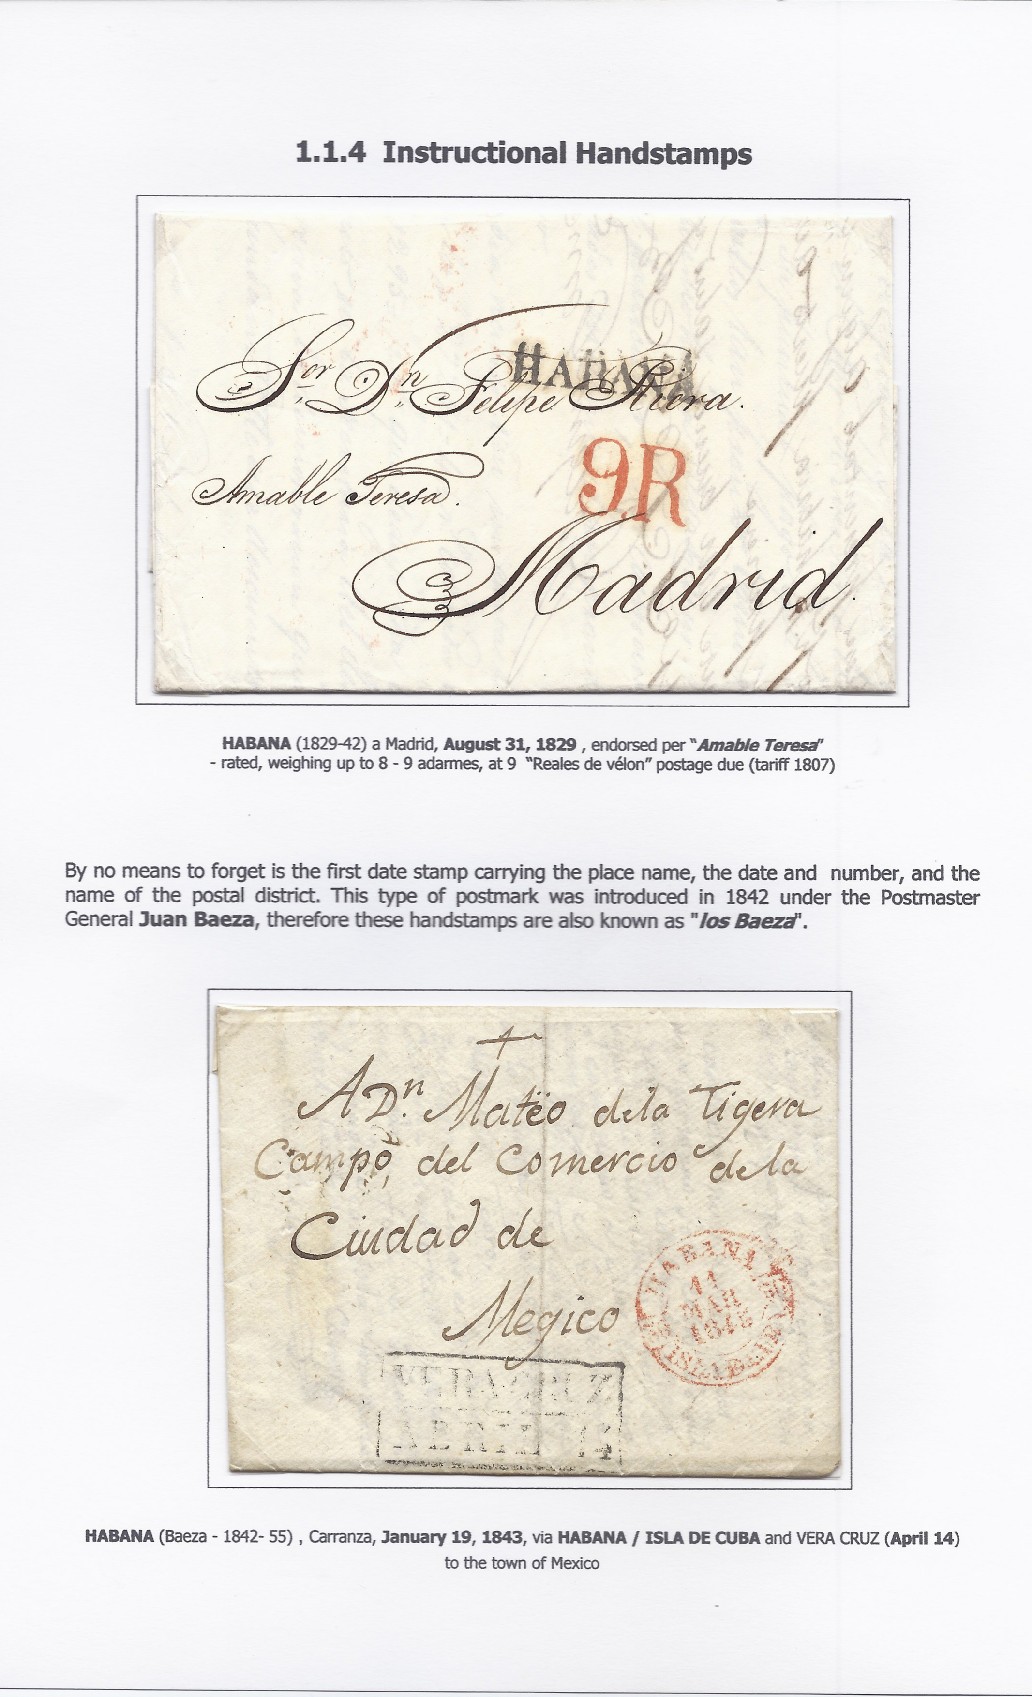 1.1.4 Instructional Handstamps
HABANA
Sor Dn Felipe Riera.
9R
Amable Teresa.
Madrid.
HABANA (1829-42) a Madrid, August 31, 1829 , endorsed per "Amable Teresa"
- rated, weighing up to 8 - 9 adarmes, at 9 "Reales de vélon" postage due (tariff 1807)
By no means to forget is the first date stamp carrying the place name, the date and number, and the
name of the postal district. This type of postmark was introduced in 1842 under the Postmaster
General Juan Baeza, therefore these handstamps are also known as "los Baeza".
A Dn. Matëo dela Tigera
Campo, del Comercio dela
Ciudad de
Megico
HABANA
11
MAR
1843
ISLA DE CUBA
VERA CRUZ
ABRIL 14
HABANA (Baeza - 1842- 55) , Carranza, January 19, 1843, via HABANA / ISLA DE CUBA and VERA CRUZ (April 14)
to the town of Mexico